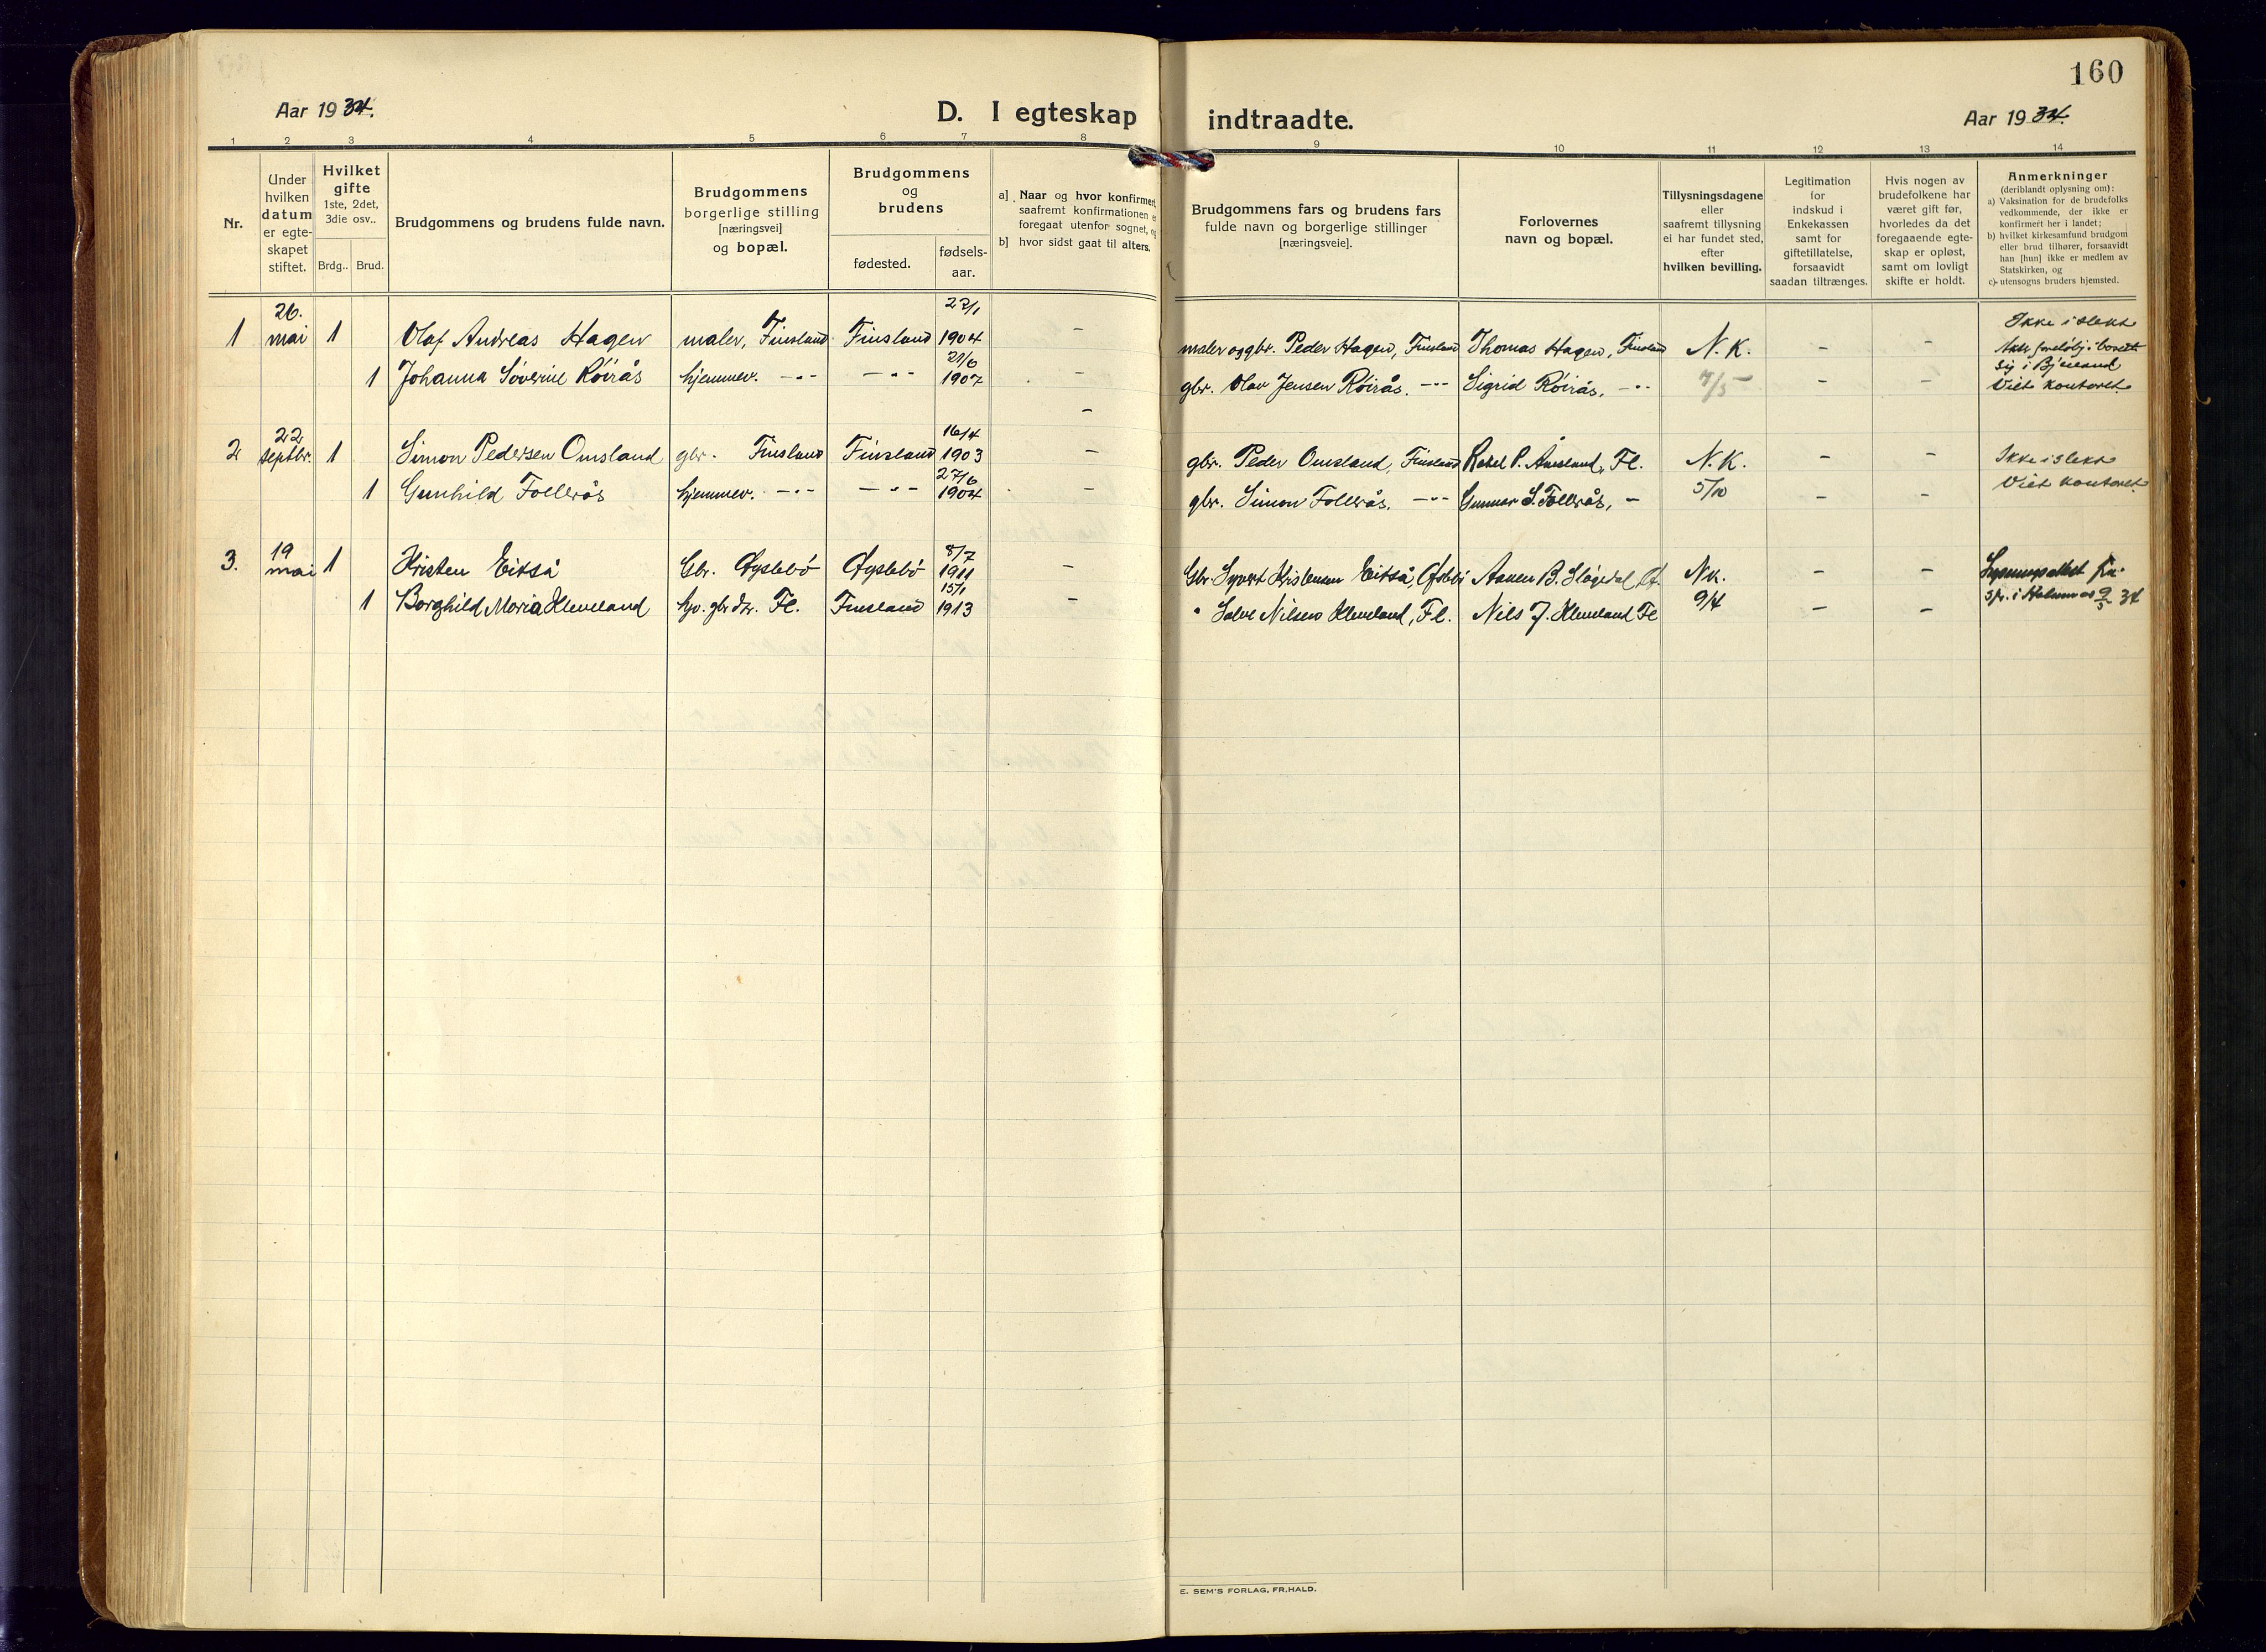 160
Aar 1934.
D. I egteskap indtraadte.
Aar 1934.
1 2 3 4 5 6 7 8 9 10 11 12 13 14
Nr.
Under
hvilken
datum
er egte-
skapet
stiftet.
Hvilket
gifte
1ste, 2det,
3die osv..
Brdg.. Brud.
Brudgommens og brudens fulde navn.
Brudgommens
borgerlige stilling
[næringsvei]
og bopæl.
Brudgommens
og
brudens
fødested.
fødsels-
aar.
a] Naar og hvor konfirmert,
saafremt konfirmationen
foregaat utenfor sognet,
b] hvor sidst gaat til alters.
Brudgommens fars og brudens fars
fulde navn og borgerlige stillinger
[næringsveie].
Forlovernes
navn og bopæl.
Tillysningsdagene
eller
saafremt tillysning
ei har fundet sted,
efter
hvilken bevilling.
Legitimation
for
indskud i
Enkekassen
samt for
giftetillatelse,
forsaavidt
saadan tiltrænges.
Hvis nogen av
brudefolkene har
været gift før,
hvorledes da det
foregaaende egte-
skap er opløst,
samt om lovligt
skifte er holdt.
Anmerkninger
(deriblandt oplysning om):
a) Vaksination for de brudefolks
vedkommende, der ikke er
konfirmert her i landet;
b) hvilket kirkesamfund brudgom
eller brud tilhører, forsaavidt
han [hun] ikke er medlem av
Statskirken, og
c) utensogns bruders hjemsted.
1 26. mai 1 Olaf Andreas Hagen maler, Finsland Finsland 22/1 1904 - maler og gbr. Peder Hagen, Finsland Thomas Hagen, Finsland N.K. - - Ikke i slekt
1 Johanna Søverine Röirås hjemmev. -"- -"- 21/6 1907 - gbr. Olav Jensen Røirås. -"- Sigrid Røirås, -"- 7/5 - -
sig i Bjelland
Viet kontoret.
2 22 septbr. 1 Simon Pedersen Omsland gbr. Finsland Finsland 16/4 1903 - gbr. Peder Omsland, Finsland Rakel P. Aunsland, Fl. N.K. - - Ikke i slekt
1 Gunhild Follerås hjemmev. -"- -"- 27/6 1904 - gbr. Simon Follerås. -"- Gunnar S. Follerås, - 5/10 - - Viet kontoret.
3. 19 mai 1 Kristen Eikså Gbr. Øyslebö Øyslebö 8/7 1911 - Gbr. Syvert Kristensen Eikså, Aanen B. Slögedal N.k. - -
1 Borghild Maria Kleveland hjv. gbrdtr. Fl. Finsland 15/1 1913 - " Salve Nilsen Kleveland, Fl. Nils J. Kleveland Fl 9/4 - - spr. i Holum 9/5 34
E. SEM'S FORLAG, FR.HALD.